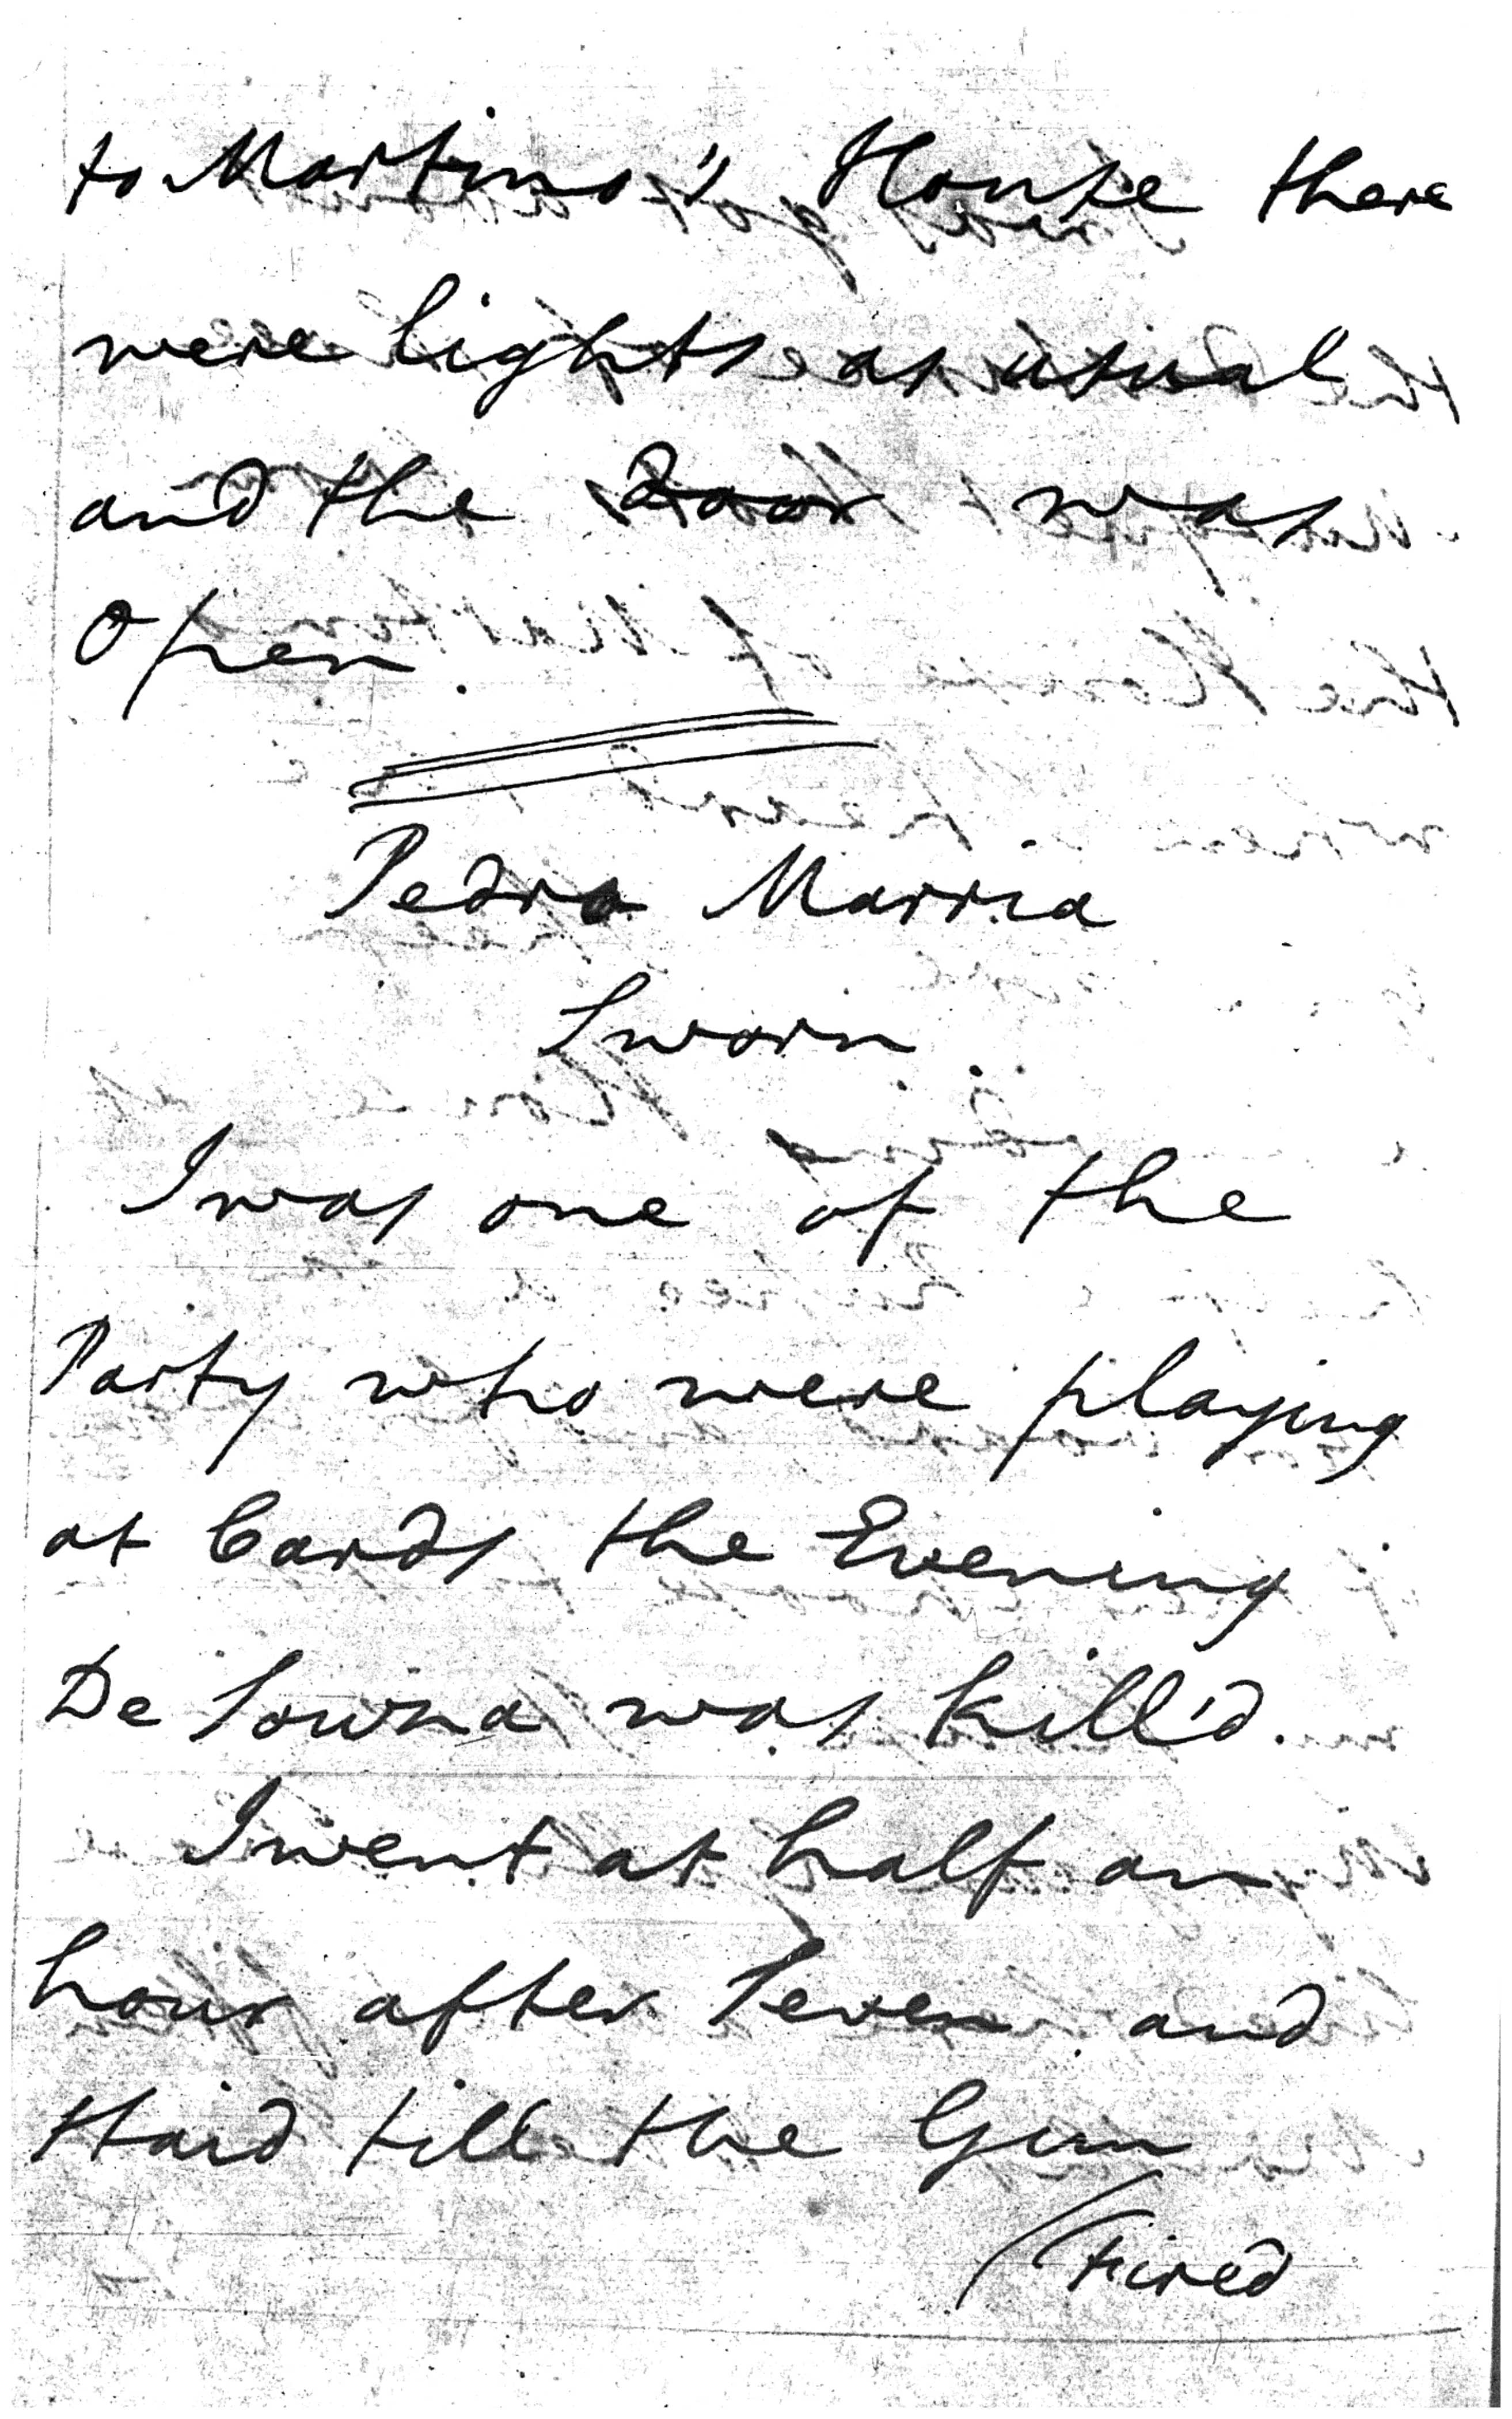 to Martino's House there
were lights as usual
and the Door was
Open.
Pedro Marria
Sworn.
I was one of the
Party who were playing
at Cards the Evening
De Souza was kill'd.
I went at half an
hour after Seven and
staid till the Gun
fired